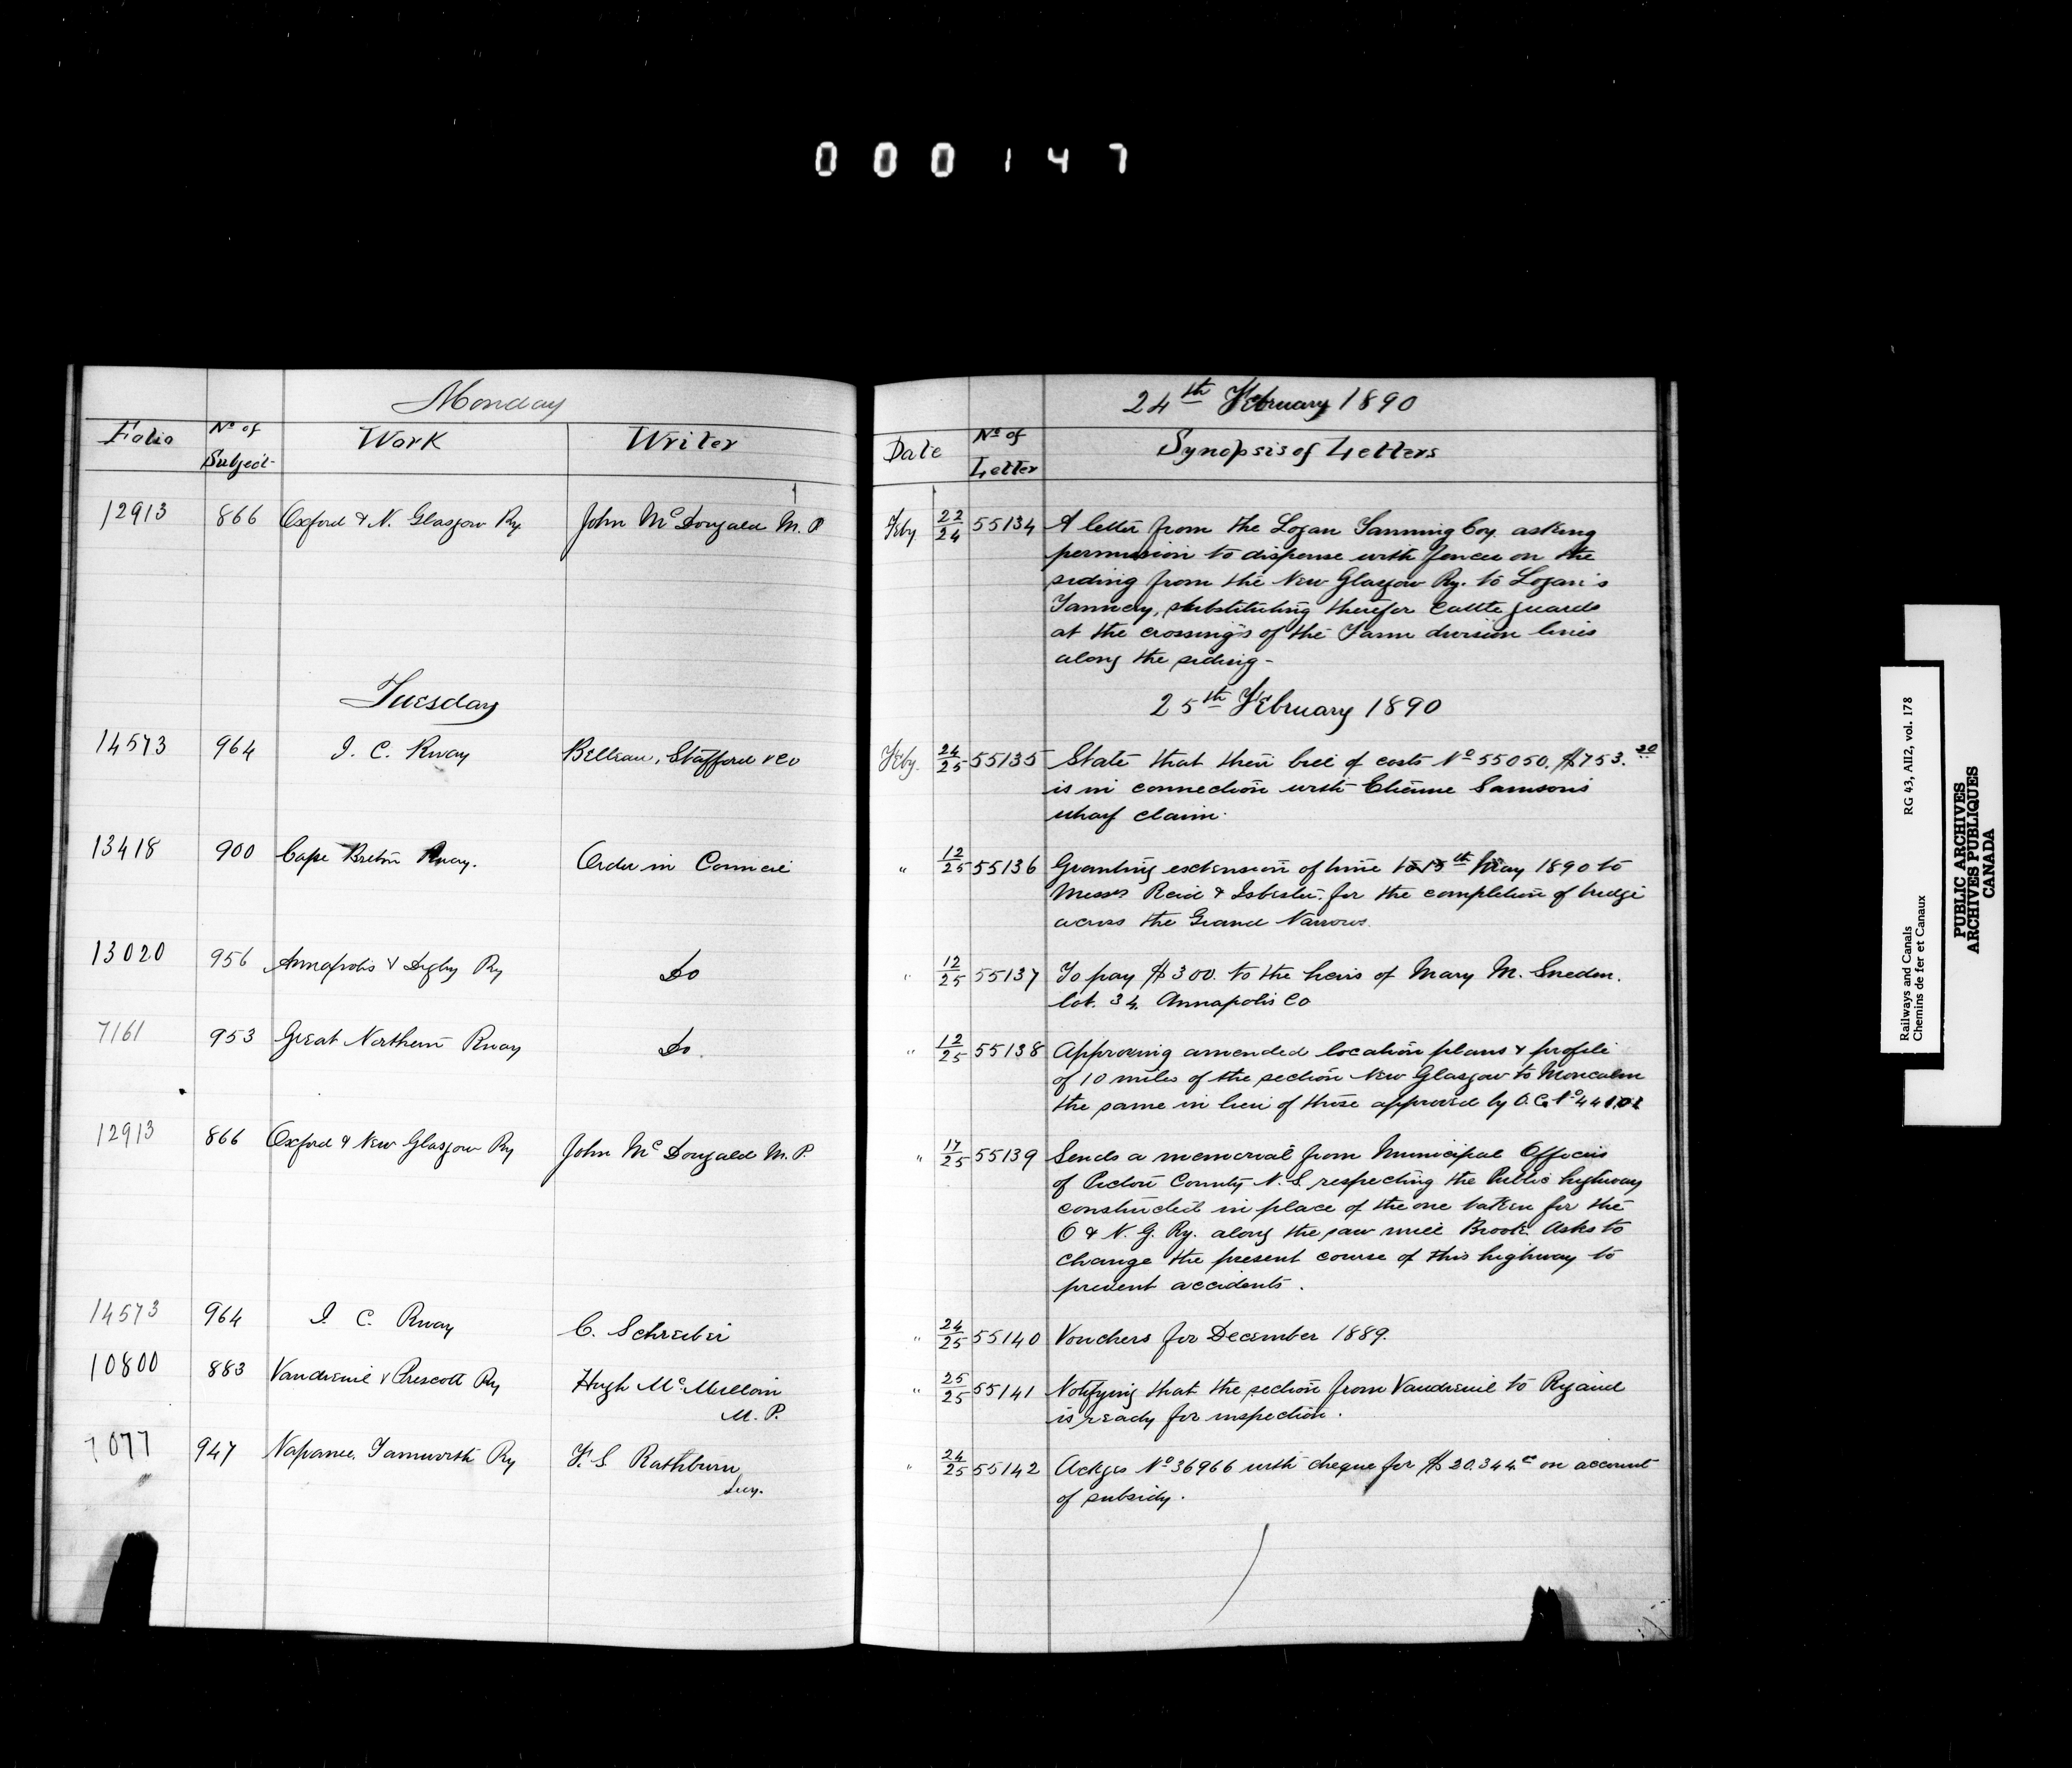 000147
Monday
Folio
No of Subject
Work
Writer
12913 866 Oxford & N. Glasgow Ry John McDougald M. P
Tuesday
14573 964 I. C. Rway Belleau, Stafford & Co
13418 900 Cape Breton Rway. Order in Council
13020 956 Annapolis & Digby Ry Do
7161 953 Great Northern Rway Do.
12913 866 Oxford & New Glasgow Ry John McDougald M. P.
14573 964 I. C. Rway C. Schreiber
10800 883 Vaudreuil & Prescott Ry Hugh McMillan
M. P.
7077 947 Napanee, Tamworth Ry F. S. Rathburn
Secy.
24th February 1890
Date
No of Letter
Synopsis of Letters
Feby 22/24 55134 A letter from the Logan Tanning Coy. asking
permission to dispense with fences on the
siding from the New Glasgow Ry. to Logan's
Tannery, substituting therefor cattle guards
at the crossings of the Farm division lines
along the siding -
25th February 1890
Feby. 24/25 55135 State that their bill of costs No 55050. $753.20
is in connection with Etienne Samson's
wharf claim.
" 12/25 55136 Granting extension of time to 15th May 1890 to
Messrs Reid & Isbister. for the completion of bridge
across the Grand Narrows.
" 12/25 55137 To pay $300. to the heirs of Mary M. Sneden.
lot. 34. Annapolis Co
" 12/25 55138 Approving amended location plans & profile
of 10 miles of the section New Glasgow to Moncalm
the same in lieu of those approved by O. C. No
" 17/25 55139 Sends a memorial from Municipal Officers
of Pictou County N. S. respecting the Public highway
constructed in place of the one taken for the
O & N. G. Ry. along the saw mill Brook. Asks to
change the present course of this highway to
prevent accidents.
" 24/25 55140 Vouchers for December 1889.
" 25/25 55141 Notifying that the section from Vaudreuil to Rigaud
is ready for inspection.
" 24/25 55142 Ackges No 36966 with cheque for $20.344. on account
of subsidy.
Railways and Canals RG 43, AII2, vol. 178
Chemins de fer et Canaux
PUBLIC ARCHIVES
ARCHIVES PUBLIQUES
CANADA